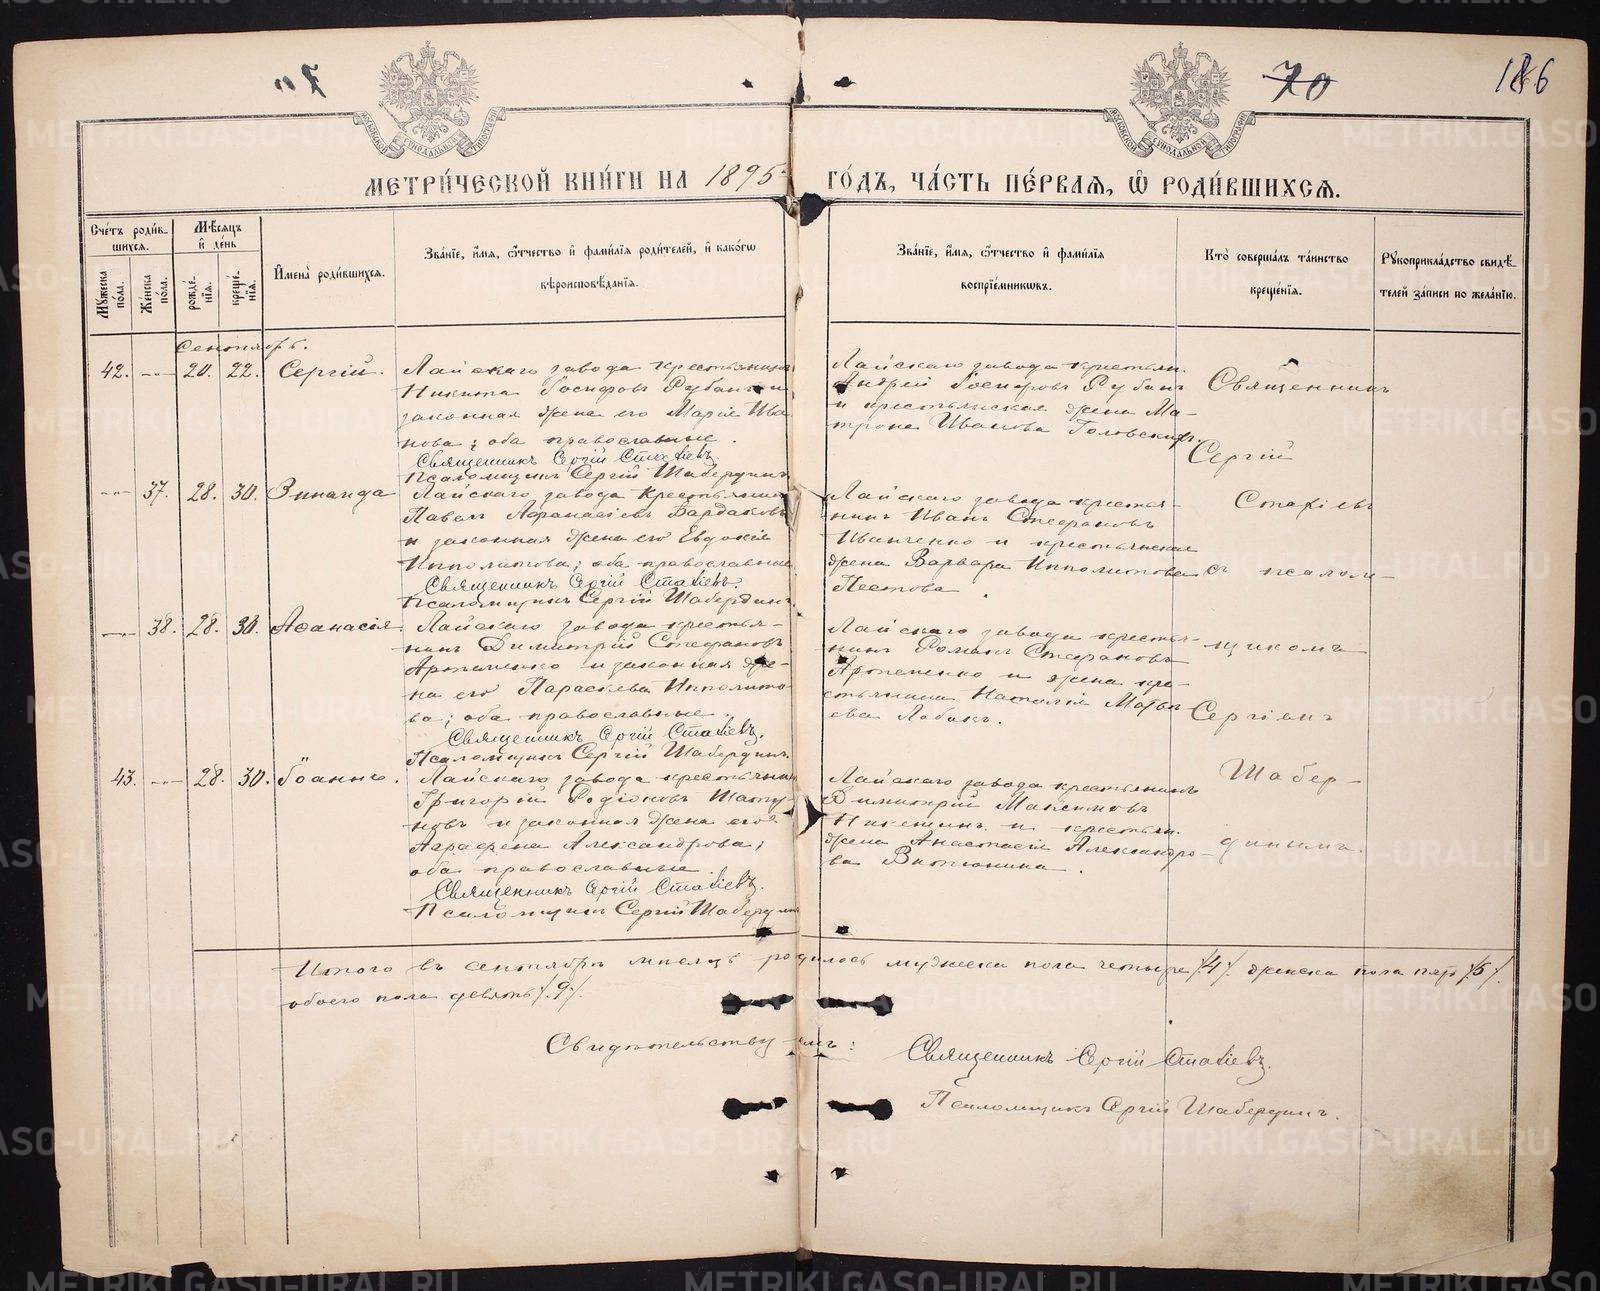 70
70
186
МЕТРИ́ЧЕСКОЙ КНИ́ГИ НА 1895
ГО́ДЪ, ЧА́СТЬ ПЕ́РВАѦ, Ѡ РОДИ́ВШИХСѦ.
Сче́тъ роди́в-
шихсѧ.
Мѣ́сѧцъ
и҆ де́нь
Мꙋ́жеска по́ла.
Же́нска пола.
рожде́-нїѧ.
креще́-нїѧ.
И҆мена̀ роди́вшихсѧ.
Зва́нїе, и҆́мѧ, ѻ҆́тчество и҆ фами́лїѧ роди́телей, и҆ како́гѡ
вѣроисповѣ́данїѧ.
Зва́нїе, и҆́мѧ, ѻ҆́тчество и҆ фами́лїѧ
воспрїе́мникѡвъ.
Кто̀ соверша́лъ та́инство
креще́нїѧ.
Рꙋкоприкла́дство свидѣ́-
телей за́писи по жела́нїю.
Сентябрь.
42. -"- 20. 22. Сергій.
Лайскаго завода крестьянинъ
Никита Іосифовъ Рубан и
законная жена его Марія Ива
нова; оба православные.
Священникъ Сергій Стахіевъ.
Псаломщикъ Сергій Шабердинъ
Лайскаго завода крестьян.
Андрей Іосифовъ Рубанъ
и крестьянская жена Ма-
трона Иванова Головских.
-"- 37. 28. 30. Зинаида
Лайскаго завода Крестьянинъ
Павелъ Афанасіевъ Бардаковъ
и законная жена его Евдокія
Ипполитова; оба православные
Священникъ Сергій Стахіевъ.
Псаломщикъ Сергій Шабердинъ.
Лайскаго завода крестья-
нинъ Иванъ Стефановъ
Иванченко и крестьянская
жена Варвара Ипполитова
Пестова.
-"- 38. 28. 30. Аѳанасія.
Лайскаго завода крестья-
нинъ Димитрій Стефановъ
Артеменко и законная же-
на его Параскева Ипполито-
ва; оба православные.
Священникъ Сергій Стахіевъ.
Псаломщикъ Сергій Шабердинъ.
Лайскаго завода крестья-
нинъ Романъ Стефановъ
Артеменко и жена кре-
стьянина Наталія Матвѣ-
ева Лобанъ.
43. -"- 28. 30. Іоаннъ.
Лайскаго завода крестьянин
Григорій Родіоновъ Шату-
новъ и законная жена его
Аграфена Александрова;
оба православные.
Священникъ Сергій Стахіевъ.
Псаломщикъ Сергій Шабердинъ
Лайскаго завода крестьянинъ
Димитрій Максимовъ
Никитинъ и крестьян.
жена Анастасія Александро-
ва Витюнина.
Священникъ
Сергій
Стахіевъ
съ псалом-
щикомъ
Сергіемъ
Шабер-
динымъ.
Итого въ сентябрѣ мѣсяцѣ родилось мужеска пола четыре /4/. женска пола пять /5/.
обоего пола девять /9/.
Свидѣтельствуемъ:
Священникъ Сергій Стахіевъ.
Псаломщикъ Сергій Шабердинъ.
METRIKI.GASO-URAL.RU